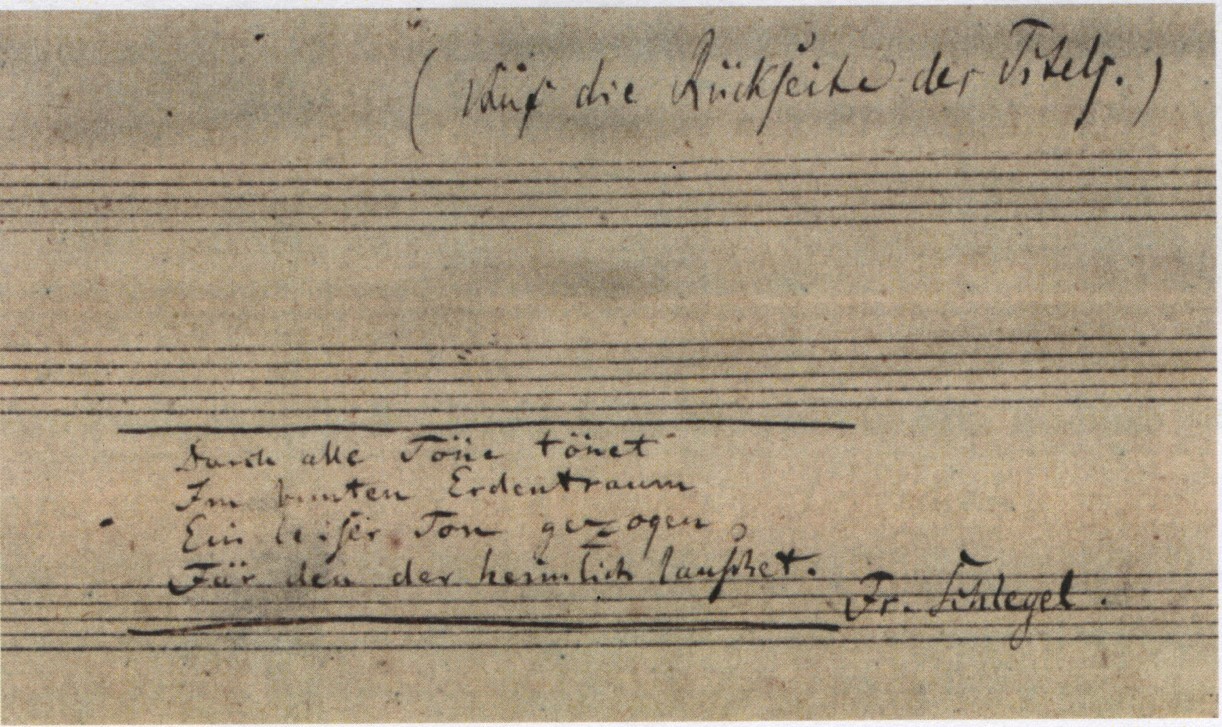 (Auf die Rückseite des Titels.)
Durch alle Töne tönet
Im bunten Erdentraum
Ein leiser Ton gezogen
Für den der heimlich lauschet.
Fr. Schlegel.